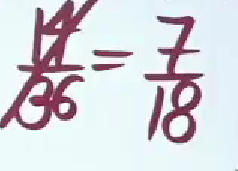 14/36 = 7/18